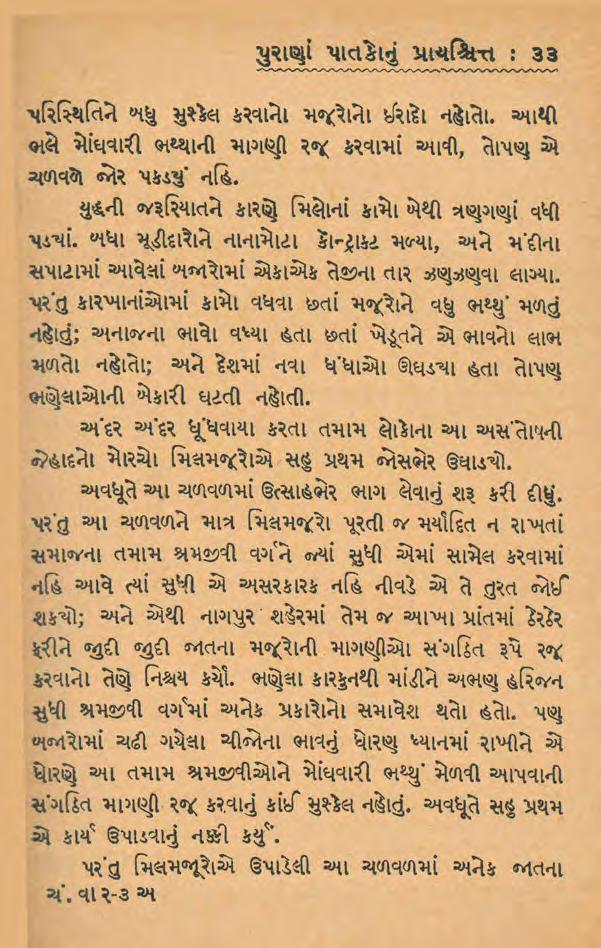 પુરાણાં પાતકોનું પ્રાયશ્ચિત્ત : ૩૩
પરિસ્થિતિને બધુ મુશ્કેલ કરવાનો મજૂરોનો ઈરાદો નહોતો. આથી
ભલે મોંઘવારી ભથ્થાની માગણી રજૂ કરવામાં આવી, તોપણ એ
ચળવળે જોર પકડયું નહિ.
યુદ્ધની જરૂરિયાતને કારણે મિલોનાં કામો બેથી ત્રણગણાં વધી
પડયાં. બધા મૂડીદારોને નાનામોટા કોન્ટ્રાકટ મળ્યા, અને મંદીના
સપાટામાં આવેલાં બજારોમાં એકાએક તેજીના તાર ઝણુઝણવા લાગ્યા.
પરંતુ કારખાનાંઓમાં કામો વધવા છતાં મજૂરોને વધુ ભથ્થું મળતું
નહોતું; અનાજના ભાવો વધ્યા હતા છતાં ખેડૂતને એ ભાવનો લાભ
મળતો નહોતો; અને દેશમાં નવા ધંધાઓ ઊઘડયા હતા તોપણ
ભણેલાઓની બેકારી ઘટતી નહોતી.
અંદર અંદર ધૂંધવાયા કરતા તમામ લોકોના આ અસંતોષની
જેહાદનો મોરચો મિલમજૂરોએ સહુ પ્રથમ જોસભેર ઉઘાડયો.
અવધૂતે આ ચળવળમાં ઉત્સાહભેર ભાગ લેવાનું શરૂ કરી દીધું.
પરંતુ આ ચળવળને માત્ર મિલમજૂરો પૂરતી જ મર્યાદિત ન રાખતાં
સમાજના તમામ શ્રમજીવી વર્ગને જ્યાં સુધી એમાં સામેલ કરવામાં
નહિ આવે ત્યાં સુધી એ અસરકારક નહિ નીવડે એ તે તુરત જોઈ
શકયો; અને એથી નાગપુર શહેરમાં તેમ જ આખા પ્રાંતમાં ઠેરઠેર
ફરીને જુદી જુદી જાતના મજૂરોની માગણીઓ સંગઠિત રૂપે રજૂ
કરવાનો તેણે નિશ્ચય કર્યો. ભણેલા કારકુનથી માંડીને અભણ હરિજન
સુધી શ્રમજીવી વર્ગમાં અનેક પ્રકારોનો સમાવેશ થતો હતો. પણ
બજારોમાં ચઢી ગયેલા ચીજોના ભાવનું ધોરણ ધ્યાનમાં રાખીને એ
ધોરણે આ તમામ શ્રમજીવીઓને મોંઘવારી ભથ્થું મેળવી આપવાની
સંગઠિત માગણી રજૂ કરવાનું કાંઈ મુશ્કેલ નહોતું. અવધૂતે સહુ પ્રથમ
એ કાર્ય ઉપાડવાનું નક્કી કર્યું.
પરંતુ મિલમજૂરોએ ઉપાડેલી આ ચળવળમાં અનેક જાતના
ચં. વા ૨-૩ અ